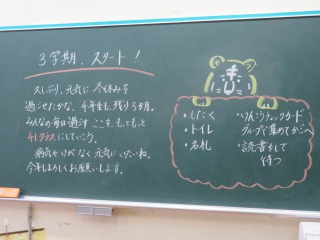 3学期、スタート!
久しぶり。元気に冬休みを
過ごせたかな。4年生も、残り3か月。
みんなの毎日過ごすここを、もっともっと
41クラスにしていこう。
病気やけがなく元気にいたいね。
今年もよろしくお願いします。
・したく
・トイレ
・名札
・けんこうチェックカード
グループで集めてかごへ
・読書をして
待つ